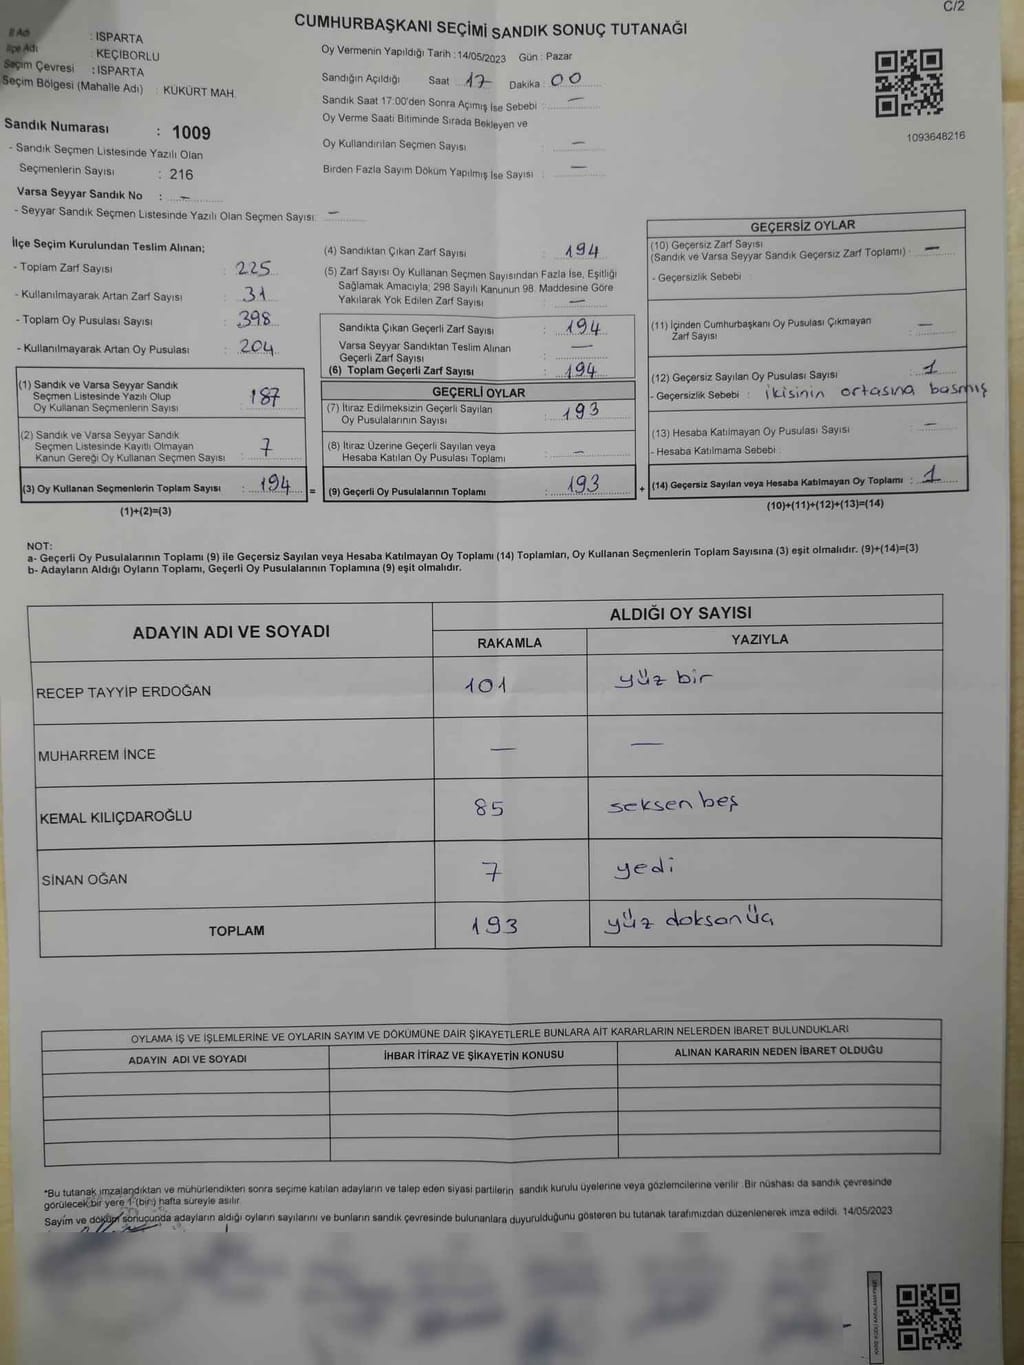 C/2
CUMHURBAŞKANI SEÇİMİ SANDIK SONUÇ TUTANAĞI
İl Adı : ISPARTA
İlçe Adı : KEÇİBORLU
Seçim Çevresi : ISPARTA
Seçim Bölgesi (Mahalle Adı) : KÜKÜRT MAH.
Sandık Numarası : 1009
- Sandık Seçmen Listesinde Yazılı Olan
Seçmenlerin Sayısı : 216
Varsa Seyyar Sandık No : —
- Seyyar Sandık Seçmen Listesinde Yazılı Olan Seçmen Sayısı: —
Oy Vermenin Yapıldığı Tarih : 14/05/2023 Gün : Pazar
Sandığın Açıldığı Saat 17 Dakika : 00
Sandık Saat 17:00'den Sonra Açımış İse Sebebi : —
Oy Verme Saati Bitiminde Sırada Bekleyen ve
Oy Kullandırılan Seçmen Sayısı : —
Birden Fazla Sayım Döküm Yapılmış İse Sayısı : —
1093648216
İlçe Seçim Kurulundan Teslim Alınan;
- Toplam Zarf Sayısı : 225
- Kullanılmayarak Artan Zarf Sayısı : 31
- Toplam Oy Pusulası Sayısı : 398
- Kullanılmayarak Artan Oy Pusulası : 204
(1) Sandık ve Varsa Seyyar Sandık
Seçmen Listesinde Yazılı Olup
Oy Kullanan Seçmenlerin Sayısı : 187
(2) Sandık ve Varsa Seyyar Sandık
Seçmen Listesinde Kayıtlı Olmayan
Kanun Gereği Oy Kullanan Seçmen Sayısı : 7
(3) Oy Kullanan Seçmenlerin Toplam Sayısı : 194 =
(1)+(2)=(3)
(4) Sandıktan Çıkan Zarf Sayısı : 194
(5) Zarf Sayısı Oy Kullanan Seçmen Sayısından Fazla İse, Eşitliği
Sağlamak Amacıyla; 298 Sayılı Kanunun 98. Maddesine Göre
Yakılarak Yok Edilen Zarf Sayısı : —
Sandıkta Çıkan Geçerli Zarf Sayısı : 194
Varsa Seyyar Sandıktan Teslim Alınan
Geçerli Zarf Sayısı : —
(6) Toplam Geçerli Zarf Sayısı : 194
GEÇERLİ OYLAR
(7) İtiraz Edilmeksizin Geçerli Sayılan
Oy Pusulalarının Sayısı : 193
(8) İtiraz Üzerine Geçerli Sayılan veya
Hesaba Katılan Oy Pusulası Toplamı : —
(9) Geçerli Oy Pusulalarının Toplamı : 193 +
GEÇERSİZ OYLAR
(10) Geçersiz Zarf Sayısı
(Sandık ve Varsa Seyyar Sandık Geçersiz Zarf Toplamı) : —
- Geçersizlik Sebebi :
(11) İçinden Cumhurbaşkanı Oy Pusulası Çıkmayan
Zarf Sayısı : —
(12) Geçersiz Sayılan Oy Pusulası Sayısı : 1
- Geçersizlik Sebebi : ikisinin ortasına basmış
(13) Hesaba Katılmayan Oy Pusulası Sayısı : —
- Hesaba Katılmama Sebebi :
(14) Geçersiz Sayılan veya Hesaba Katılmayan Oy Toplamı : 1
(10)+(11)+(12)+(13)=(14)
NOT:
a- Geçerli Oy Pusulalarının Toplamı (9) ile Geçersiz Sayılan veya Hesaba Katılmayan Oy Toplamı (14) Toplamları, Oy Kullanan Seçmenlerin Toplam Sayısına (3) eşit olmalıdır. (9)+(14)=(3)
b- Adayların Aldığı Oyların Toplamı, Geçerli Oy Pusulalarının Toplamına (9) eşit olmalıdır.
ADAYIN ADI VE SOYADI ALDIĞI OY SAYISI
RAKAMLA YAZIYLA
RECEP TAYYİP ERDOĞAN 101 yüz bir
MUHARREM İNCE — —
KEMAL KILIÇDAROĞLU 85 seksen beş
SİNAN OĞAN 7 yedi
TOPLAM 193 yüz doksan üç
OYLAMA İŞ VE İŞLEMLERİNE VE OYLARIN SAYIM VE DÖKÜMÜNE DAİR ŞİKAYETLERLE BUNLARA AİT KARARLARIN NELERDEN İBARET BULUNDUKLARI
ADAYIN ADI VE SOYADI İHBAR İTİRAZ VE ŞİKAYETİN KONUSU ALINAN KARARIN NEDEN İBARET OLDUĞU
*Bu tutanak imzalandıktan ve mühürlendikten sonra seçime katılan adayların ve talep eden siyasi partilerin sandık kurulu üyelerine veya gözlemcilerine verilir. Bir nüshası da sandık çevresinde
görülecek bir yere 1 (bir) hafta süreyle asılır.
Sayım ve döküm sonucunda adayların aldığı oyların sayılarını ve bunların sandık çevresinde bulunanlara duyurulduğunu gösteren bu tutanak tarafımızdan düzenlenerek imza edildi. 14/05/2023